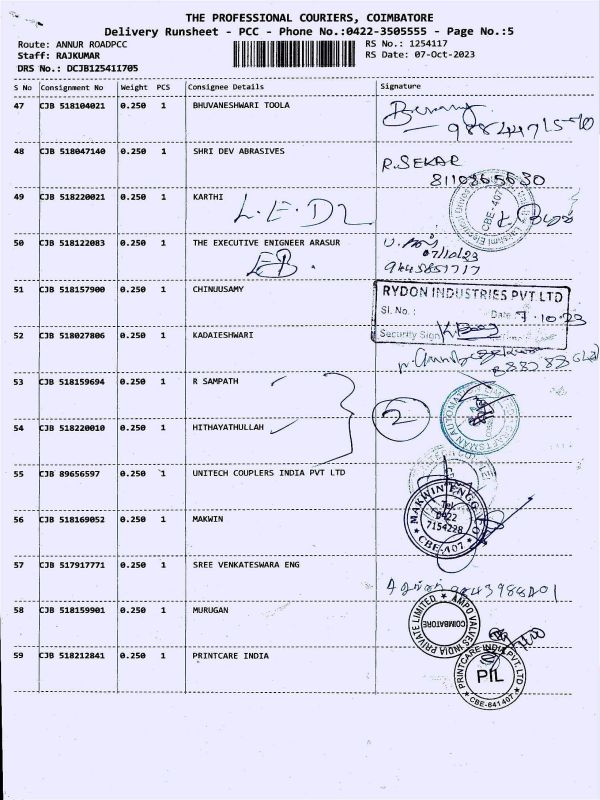 THE PROFESSIONAL COURIERS, COIMBATORE
Delivery Runsheet - PCC - Phone No.:0422-3505555 - Page No.:5
Route: ANNUR ROADPCC RS No.: 1254117
Staff: RAJKUMAR RS Date: 07-Oct-2023
DRS No.: DCJB125411705
S No Consignment No Weight PCS Consignee Details Signature
47 CJB 518104021 0.250 1 BHUVANESHWARI TOOLA
48 CJB 518047140 0.250 1 SHRI DEV ABRASIVES
R.SEKAR
8110865630
49 CJB 518220021 0.250 1 KARTHI
CBE-407
50 CJB 518122083 0.250 1 THE EXECUTIVE ENIGNEER ARASUR
07/10/23
9645851717
51 CJB 518157900 0.250 1 CHINUUSAMY
RYDON INDUSTRIES PVT.LTD
Sl. No. : Date 7.10.23
Security Sign
52 CJB 518027806 0.250 1 KADAIESHWARI
53 CJB 518159694 0.250 1 R SAMPATH
2
54 CJB 518220010 0.250 1 HITHAYATHULLAH
55 CJB 89656597 0.250 1 UNITECH COUPLERS INDIA PVT LTD
56 CJB 518169052 0.250 1 MAKWIN
MAKWIN ENGG
Tel
0422
7154228
CBE-407
57 CJB 517917771 0.250 1 SREE VENKATESWARA ENG
58 CJB 518159901 0.250 1 MURUGAN
AMPO VALVES INDIA PRIVATE LIMITED
COIMBATORE
59 CJB 518212841 0.250 1 PRINTCARE INDIA
PRINTCARE INDIA PVT.LTD
PIL
CBE-641407